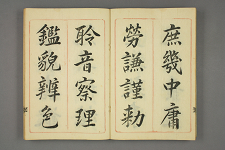 庶幾中庸
勞謙謹勅
聆音察理
鑑貌辨色